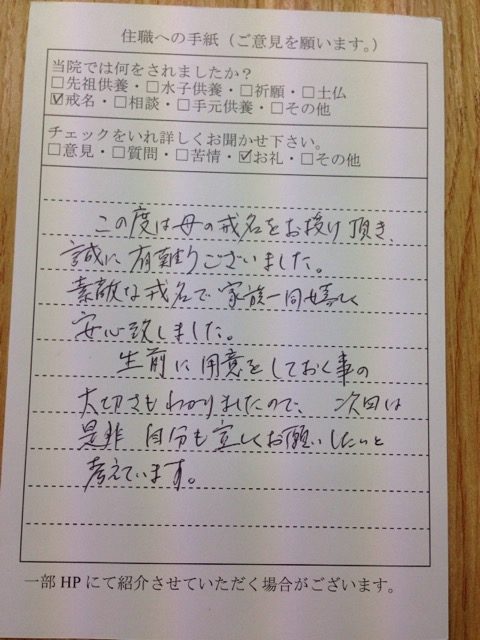 住職への手紙（ご意見を願います。）
当院では何をされましたか？
□先祖供養・□水子供養・□祈願・□土仏
☑戒名・□相談・□手元供養・□その他
チェックをいれ詳しくお聞かせ下さい。
□意見・□質問・□苦情・☑お礼・□その他
この度は母の戒名をお授け頂き、
誠に有難うございました。
素敵な戒名で家族一同嬉しく
安心致しました。
生前に用意をしておく事の
大切さもわかりましたので、次回は
是非自分も宜しくお願いしたいと
考えています。
一部HPにて紹介させていただく場合がございます。